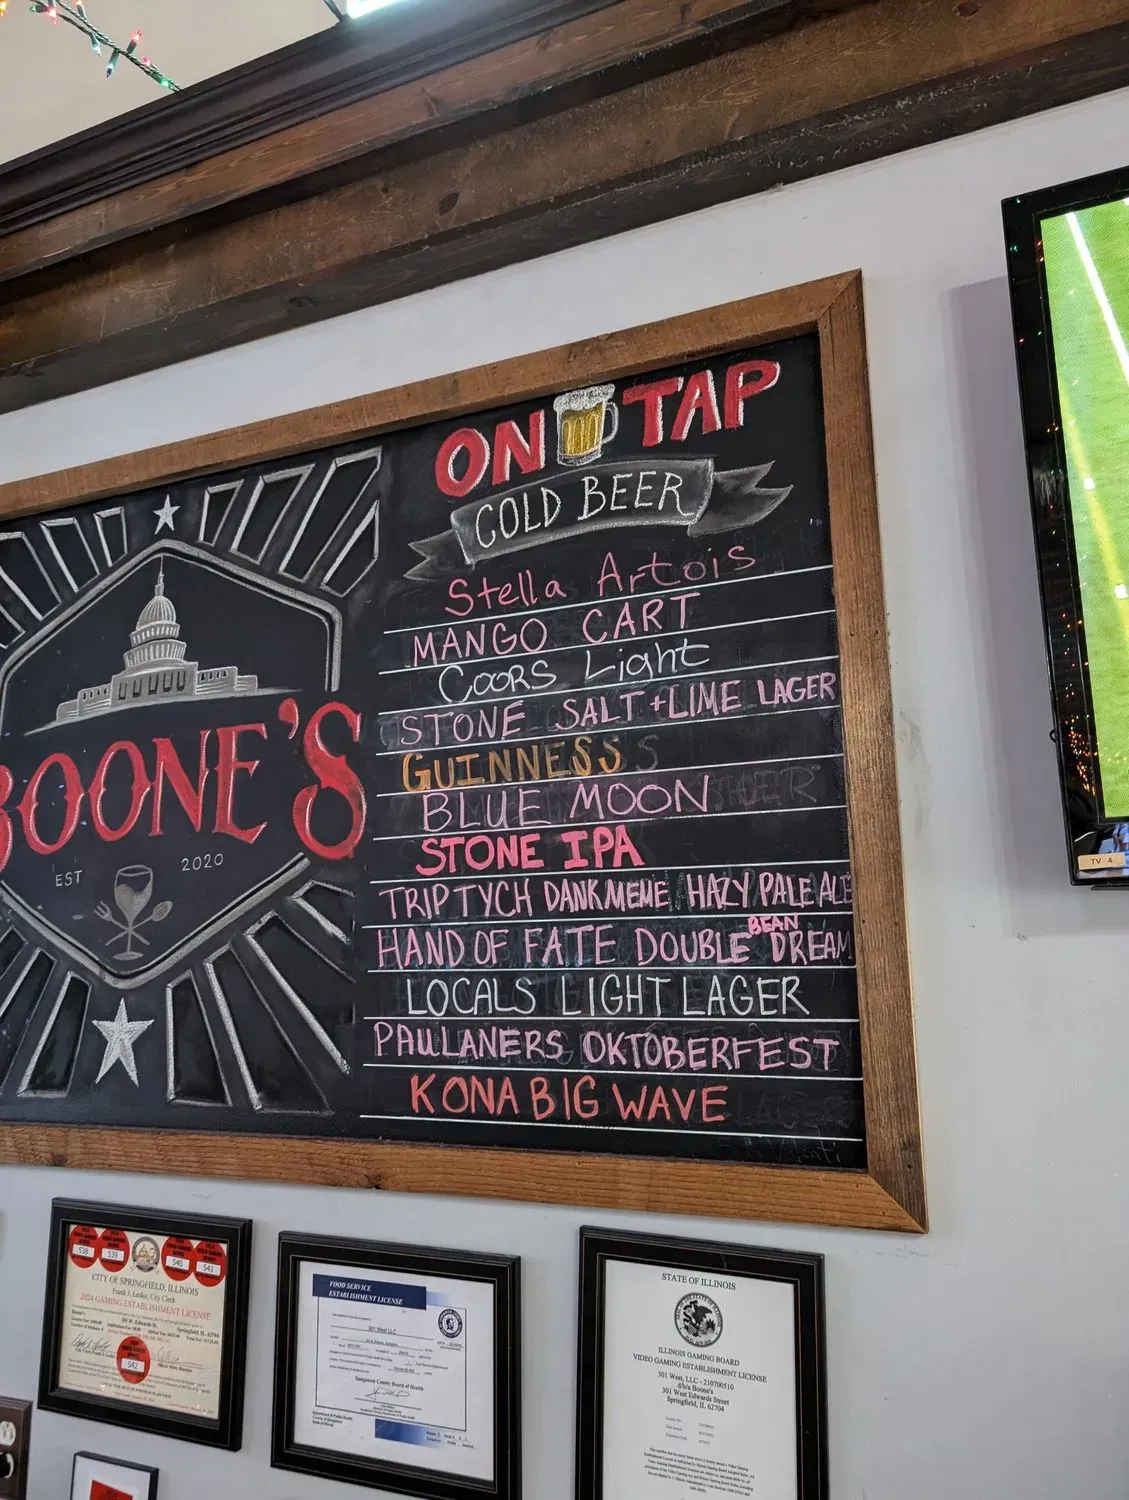 ON TAP
COLD BEER
Stella Artois
MANGO CART
COORS Light
STONE SALT + LIME LAGER
GUINNESS
BLUE MOON
STONE IPA
TRIPTYCH DANK MEME HAZY PALE ALE
HAND OF FATE DOUBLE BEAN DREAM
LOCALS LIGHT LAGER
PAULANERS OKTOBERFEST
KONA BIG WAVE
BOONE'S
EST 2020
TV 4
538 539 540 541
CITY OF SPRINGFIELD, ILLINOIS
Frank J. Lesko, City Clerk
2024 GAMING ESTABLISHMENT LICENSE
Boone's
301 W. Edwards St.
Springfield, IL 62704
542
FOOD SERVICE
ESTABLISHMENT LICENSE
301 West LLC
Sangamon County Board of Health
STATE OF ILLINOIS
ILLINOIS GAMING BOARD
VIDEO GAMING ESTABLISHMENT LICENSE
301 West, LLC - 210700510
d/b/a Boone's
301 West Edwards Street
Springfield, IL 62704